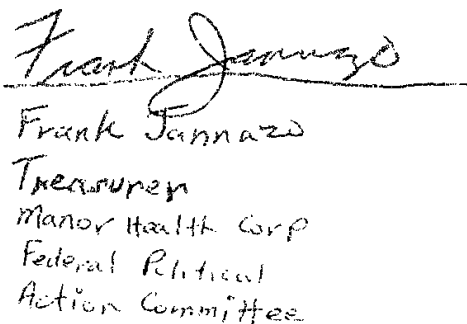 Frank Jannazo
Frank Jannazo
Treasurer
Manor Health Corp
Federal Political
Action Committee